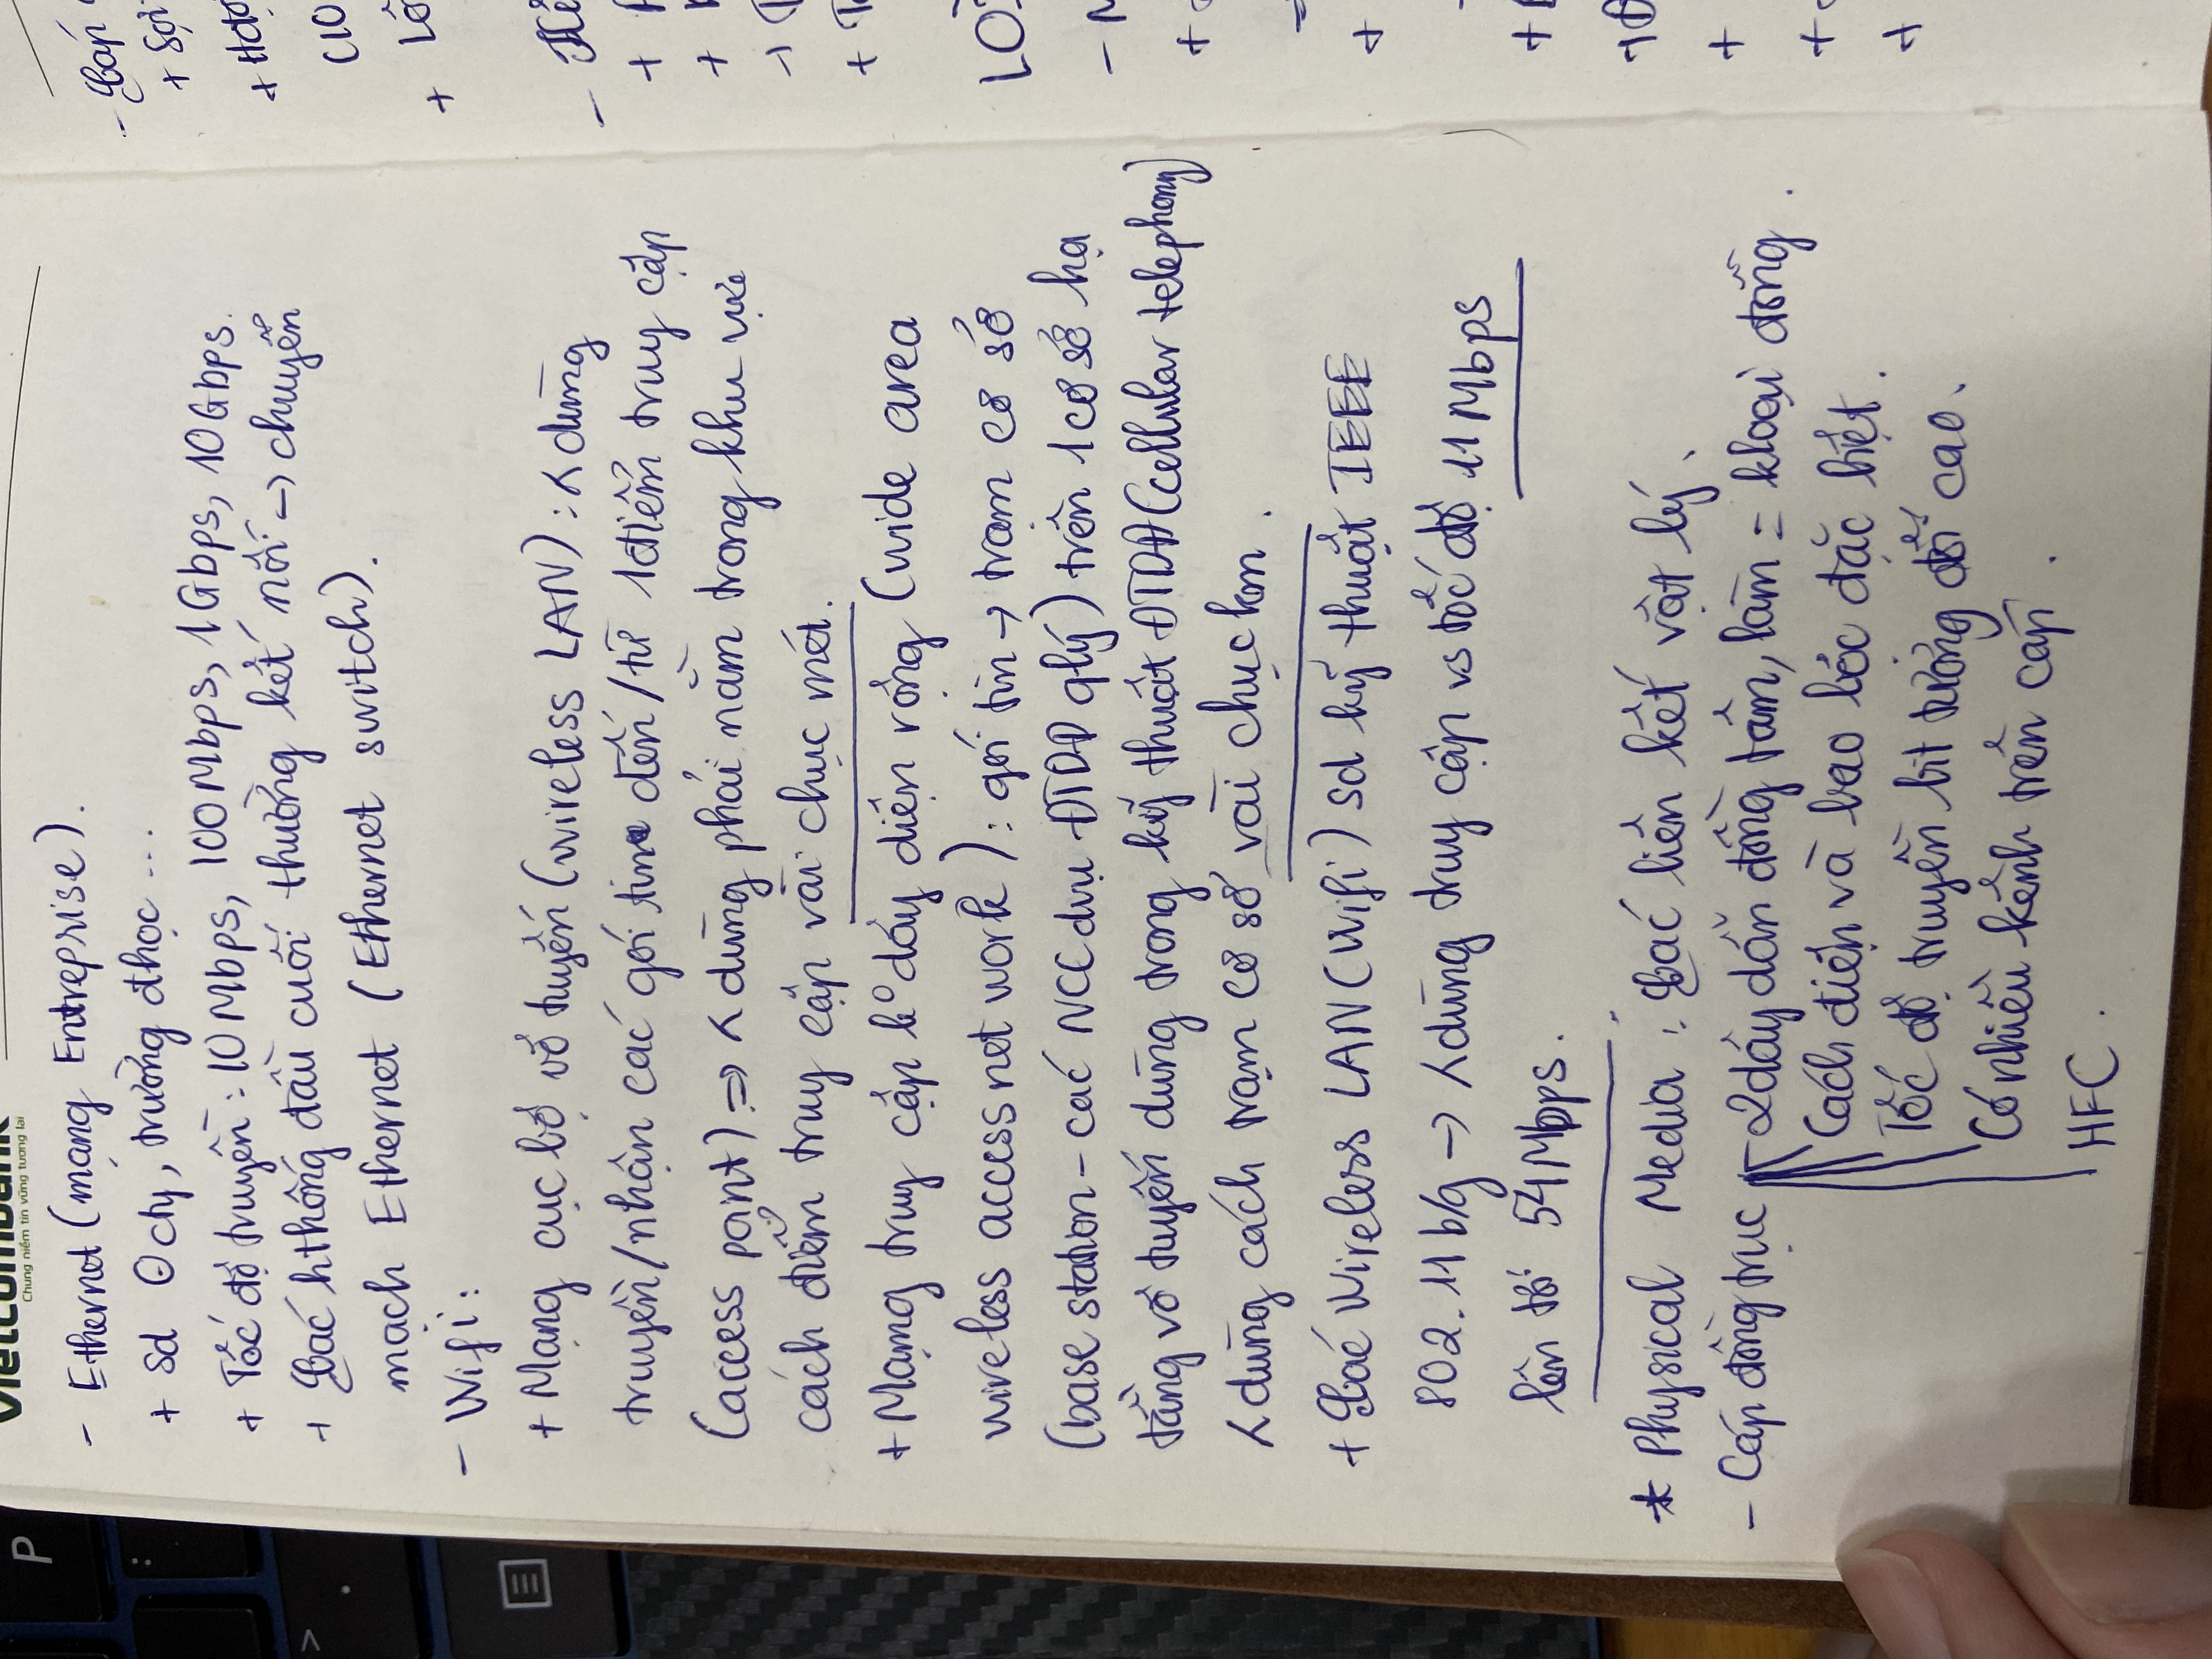 Vietcombank
Chung niềm tin vững tương lai
- Ethernet (mạng Entreprise).
+ sd ở cty, trường đhọc ...
+ Tốc độ truyền: 10Mbps, 100Mbps, 1Gbps, 10Gbps.
+ Các hthống đầu cuối thường kết nối → chuyển
mạch Ethernet (Ethernet switch).
- Wifi:
+ Mạng cục bộ vô tuyến (wireless LAN): ʎ dùng
truyền/nhận các gói tin đến/từ 1 điểm truy cập
(access point) ⇒ ʎ dùng phải nằm trong khu vực
cách điểm truy cập vài chục mét.
+ Mạng truy cập k° dây diện rộng (wide area
wireless access network): gói tin → trạm cơ sở
(base station - các NCC dvụ ĐTDĐ qlý) trên 1 cơ sở hạ
tầng vô tuyến dùng trong kỹ thuật ĐTDĐ (cellular telephony)
ʎ dùng cách trạm cơ sở vài chục km.
+ Các Wireless LAN (Wifi) sd kỹ thuật IEEE
802.11 b/g → ʎ dùng truy cập vs tốc độ 11 Mbps
lên tới 54Mbps.
* Physical Media: Các liên kết vật lý.
- Cáp đồng trục 2 dây dẫn đồng tâm, làm = kloại đồng.
Cách điện và bao bọc đặc biệt.
Tốc độ truyền bit tương đối cao.
Có nhiều kênh trên cáp.
HFC.
- Cáp
+ Sợi
+ Hđộ
(10
LO